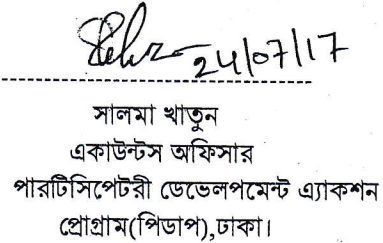 24/07/17
সালমা খাতুন
একাউন্টস অফিসার
পারটিসিপেটরী ডেভেলপমেন্ট এ্যাকশন
প্রোগ্রাম(পিডাপ),ঢাকা।